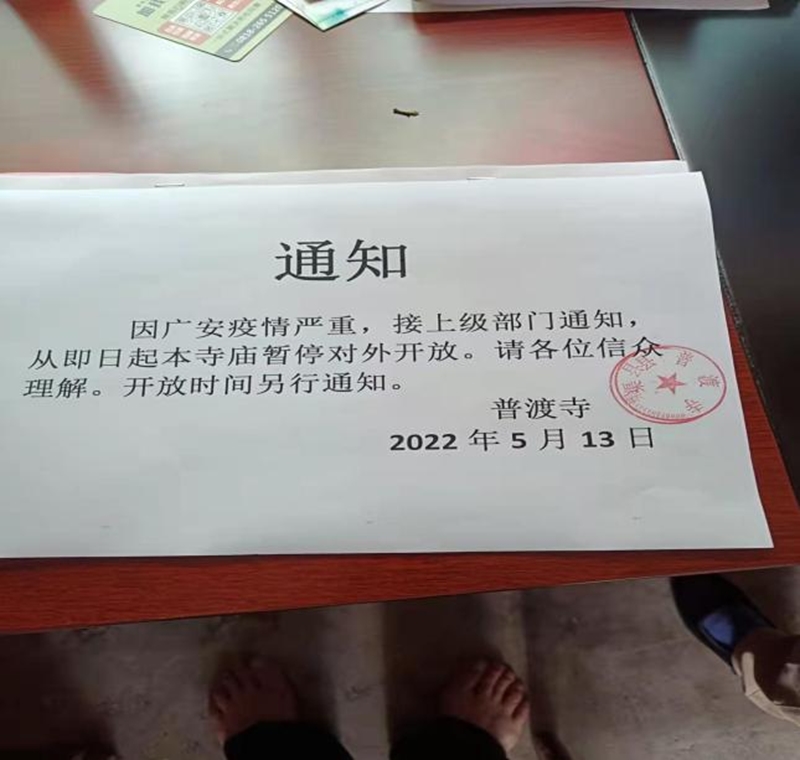 通知
因广安疫情严重，接上级部门通知，
从即日起本寺庙暂停对外开放。请各位信众
理解。开放时间另行通知。
普渡寺
2022年5月13日